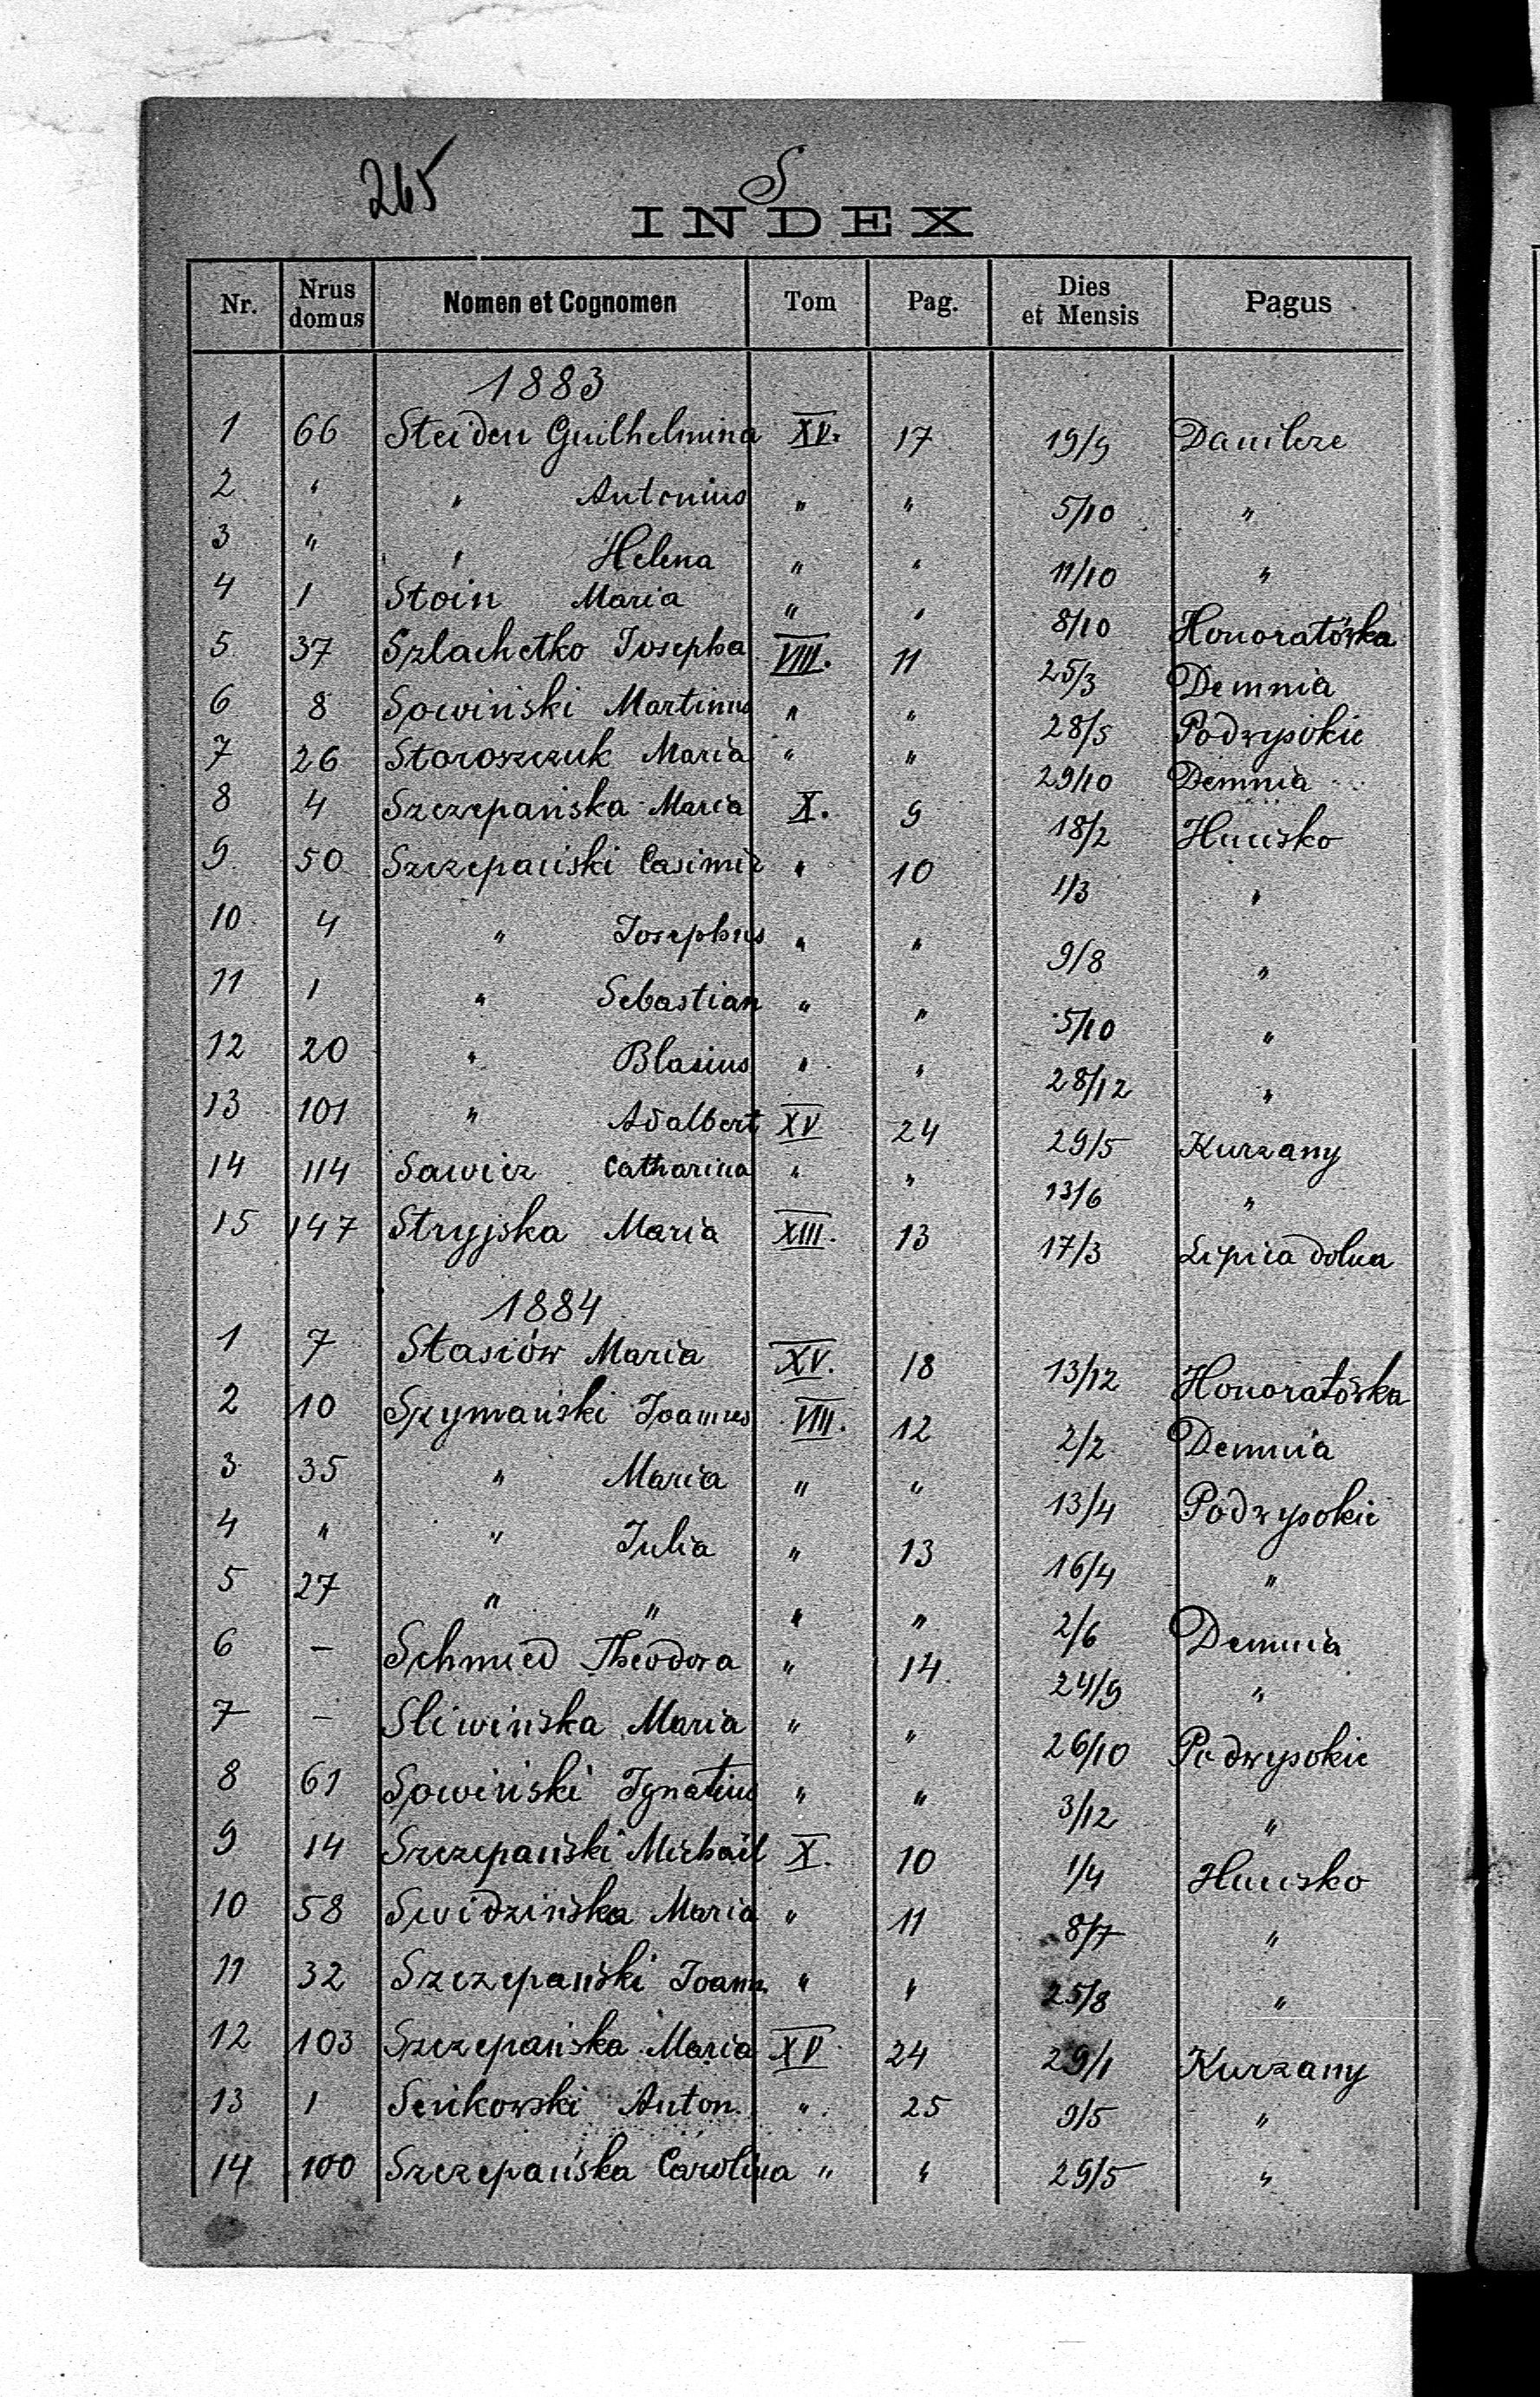 265
S
INDEX
Nr. Nrus domus Nomen et Cognomen Tom Pag. Dies et Mensis Pagus
1883
1 66 Steiden Guilhelmina XV. 17 19/9 Danilcze
2 " " Antonius " " 5/10 "
3 " " Helena " " 11/10 "
4 1 Stoin Maria " " 8/10 Honoratówka
5 37 Szlachetko Josepha VIII. 11 25/3 Demnia
6 8 Sowiński Martinus " " 28/5 Podwysokie
7 26 Staroszczuk Maria " " 29/10 Demnia
8 4 Szczepańska Maria X. 9 18/2 Hucisko
9 50 Szczepański Casimir " 10 1/3 "
10 4 " Josephus " " 9/8 "
11 1 " Sebastian " " 5/10 "
12 20 " Blasius " " 28/12 "
13 101 " Adalbert XV 24 29/5 Kurzany
14 114 Sawicz Catharina " " 13/6 "
15 147 Stryjska Maria XIII. 13 17/3 Lipica dolna
1884
1 7 Stasiów Maria XV. 18 13/12 Honoratówka
2 10 Szymański Joannes VIII. 12 2/2 Demnia
3 35 " Maria " " 13/4 Podwysokie
4 " " Julia " 13 16/4 "
5 27 " " " " 2/6 Demnia
6 – Schmied Theodora " 14. 24/9 "
7 – Sliwińska Maria " " 26/10 Podwysokie
8 61 Sowiński Ignatius " " 3/12 "
9 14 Szczepański Michaël X. 10 1/4 Hucisko
10 58 Swidzińska Maria " 11 8/7 "
11 32 Szczepański Joann. " " 25/8 "
12 103 Szczepańska Maria XV 24 29/1 Kurzany
13 1 Senkowski Anton. " 25 9/5 "
14 100 Szczepańska Carolina " " 29/5 "